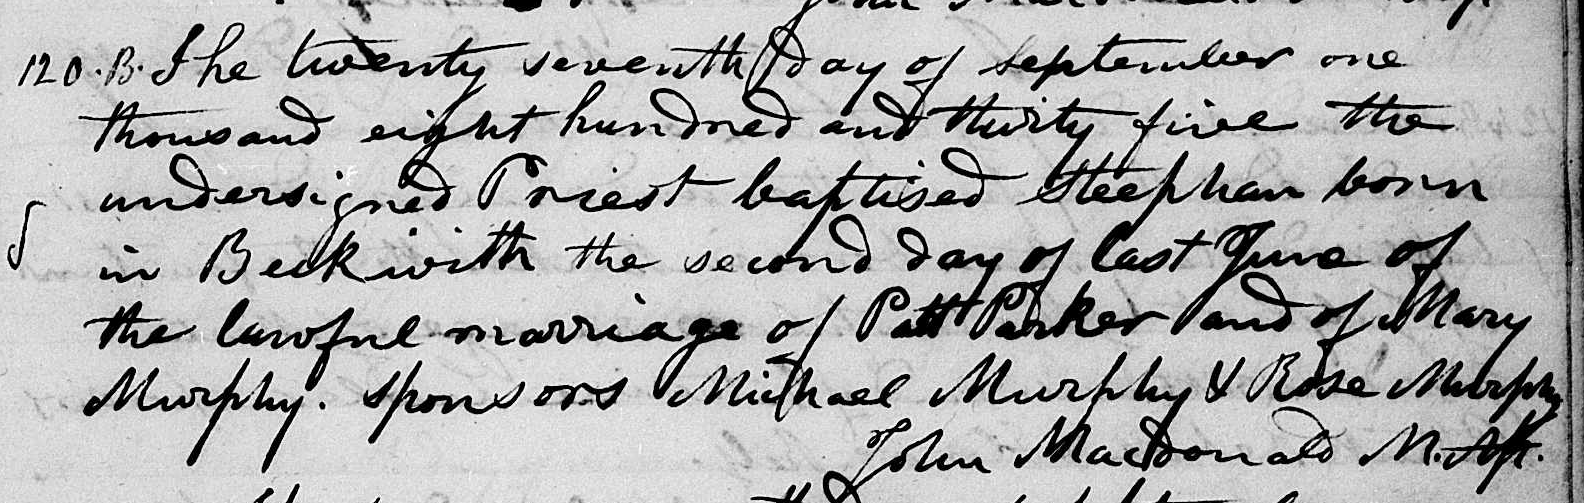 120. B. The twenty seventh day of September one
thousand eight hundred and thirty five the
undersigned Priest baptised Steephan born
in Beckwith the second day of last June of
the lawful marriage of Patt Parker and of Mary
Murphy. sponsors Michael Murphy & Rose Murphy
John Macdonald M. Ap.